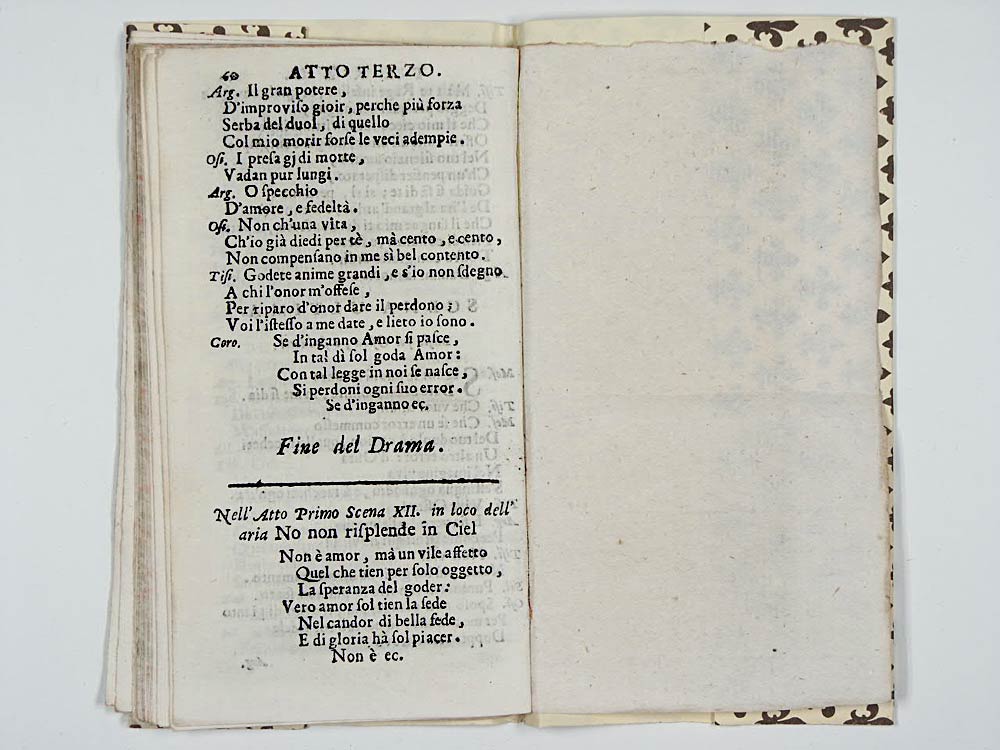 60 ATTO TERZO.
Arg. Il gran potere,
D'improviſo gioir, perche più forza
Serba del duol, di quello
Col mio morir forſe le veci adempie.
Oſi. I preſagj di morte,
Vadan pur lungi.
Arg. O ſpecchio
D'amore, e fedeltà.
Oſi. Non ch'una vita,
Ch'io già diedi per tè, mà cento, e cento,
Non compenſano in me sì bel contento.
Tiſi. Godete anime grandi, e s'io non ſdegno
A chi l'onor m'offeſe,
Per riparo d'onor dare il perdono;
Voi l'iſteſſo a me date, e lieto io ſono.
Coro. Se d'inganno Amor ſi paſce,
In tal dì ſol goda Amor:
Con tal legge in noi ſe naſce,
Si perdoni ogni ſuo error.
Se d'inganno ec.
Fine del Drama.
Nell'Atto Primo Scena XII. in loco dell'
aria No non riſplende in Ciel
Non è amor, mà un vile affetto
Quel che tien per ſolo oggetto,
La ſperanza del goder:
Vero amor ſol tien la ſede
Nel candor di bella fede,
E di gloria hà ſol piacer.
Non è ec.